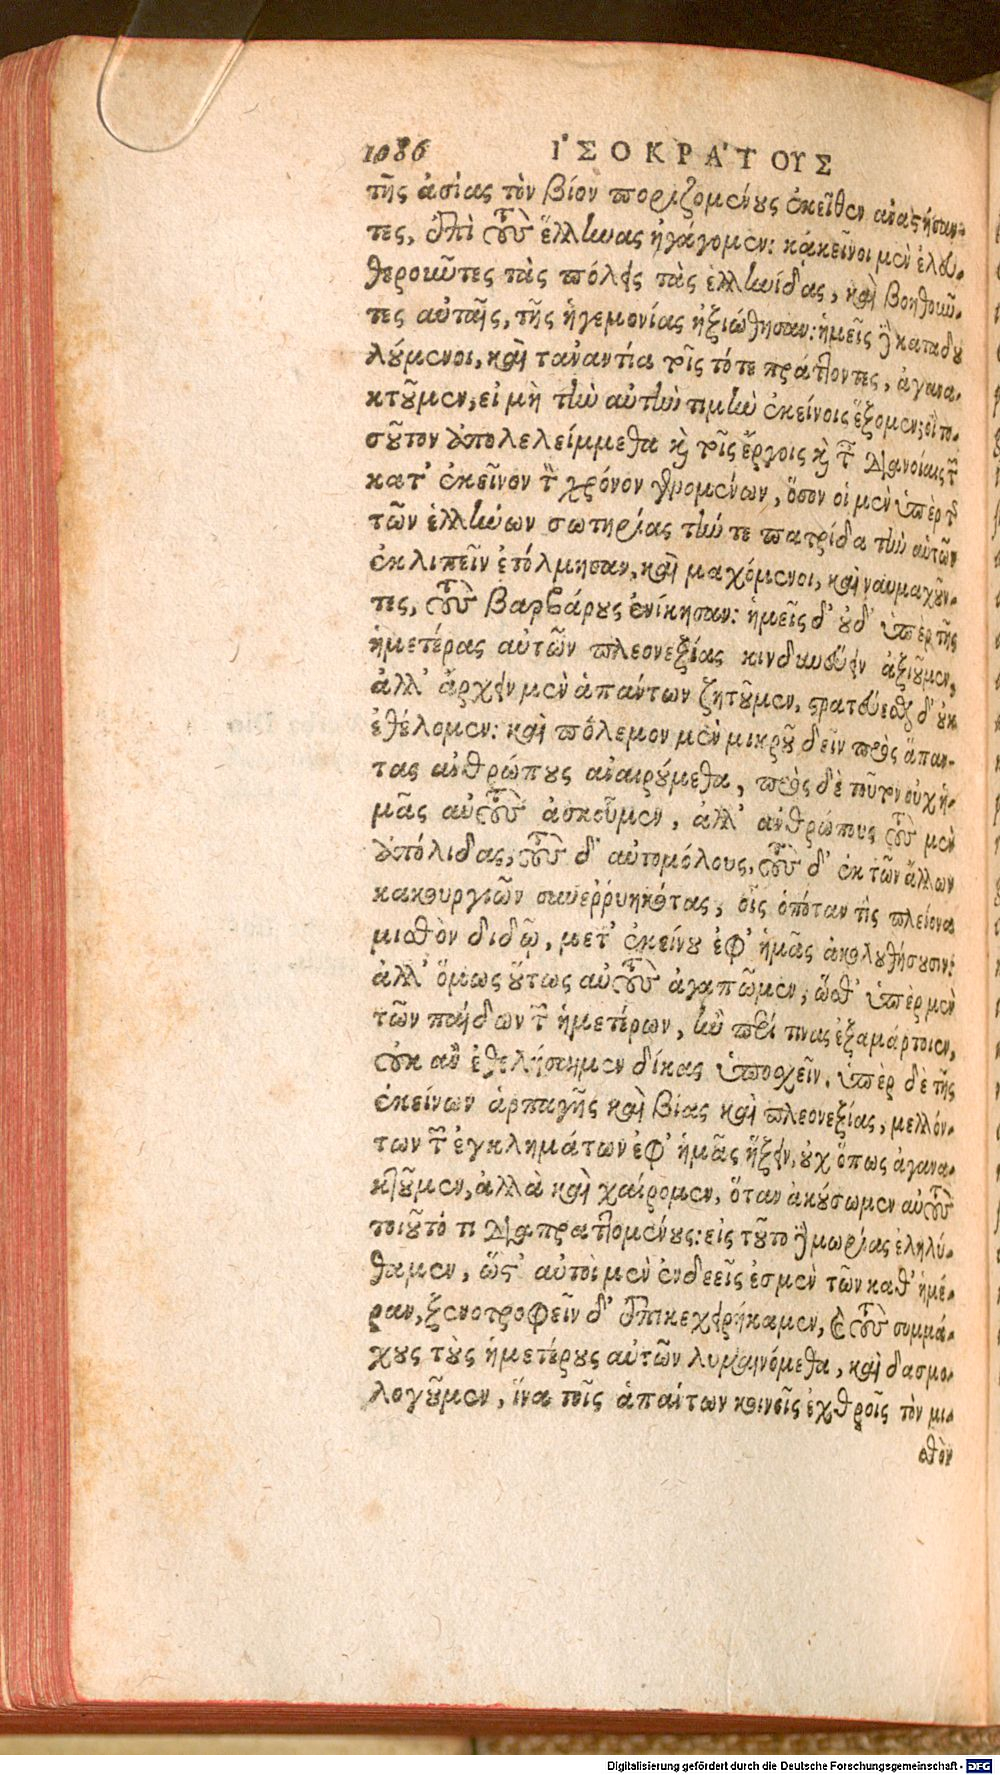 1086 ἸΣΟΚΡΆΤΟΥΣ
τῆς ἀσίας τὸν βίον ποριζομένους ἐκεῖθεν ἀναστήσαν-
τες, ἐπὶ τοὺς ἕλληνας ἠγάγομεν: κἀκεῖνοι μὲν ἐλευ-
θεροῦντες τὰς πόλεις τὰς ἑλληνίδας, καὶ βοηθοῦν-
τες αὐταῖς, τῆς ἡγεμονίας ἠξιώθησαν: ἡμεῖς δὲ καταδου
λούμενοι, καὶ τἀναντία τοῖς τότε πράττοντες, ἀγανα-
κτοῦμεν, εἰ μὴ τὴν αὐτὴν τιμὴν ἐκείνοις ἕξομεν; οἳ το-
σοῦτον ἀπολελείμμεθα καὶ τοῖς ἔργοις καὶ ταῖς διανοίαις τῶν
κατ' ἐκεῖνον τὸν χρόνον γενομένων, ὅσον οἱ μὲν ὑπὲρ τῆς
τῶν ἑλλήνων σωτηρίας τήν τε πατρίδα τὴν αὑτῶν
ἐκλιπεῖν ἐτόλμησαν, καὶ μαχόμενοι, καὶ ναυμαχοῦν-
τες, τοὺς βαρβάρους ἐνίκησαν: ἡμεῖς δ' οὐδ' ὑπὲρ τῆς
ἡμετέρας αὐτῶν πλεονεξίας κινδυνεύειν ἀξιοῦμεν,
ἀλλ' ἄρχειν μὲν ἁπάντων ζητοῦμεν, στρατεύεσθαι δ' οὐκ
ἐθέλομεν: καὶ πόλεμον μὲν μικροῦ δεῖν πρὸς ἅπαν-
τας ἀνθρώπους ἀναιρούμεθα, πρὸς δὲ τοῦτον οὐχ ἡ-
μᾶς αὐτοὺς ἀσκοῦμεν, ἀλλ' ἀνθρώπους τοὺς μὲν
ἀπόλιδας, τοὺς δ' αὐτομόλους, τοὺς δ' ἐκ τῶν ἄλλων
κακουργιῶν συνεῤῥυηκότας, οἷς ὁπόταν τὶς πλείονα
μισθὸν διδῷ, μετ' ἐκείνου ἐφ' ἡμᾶς ἀκολουθήσουσιν:
ἀλλ' ὅμως οὕτως αὐτοὺς ἀγαπῶμεν, ὥσθ' ὑπὲρ μὲν
τῶν παίδων τῶν ἡμετέρων, ἢν περί τινας ἐξαμάρτοιεν,
οὐκ ἂν ἐθελήσαιμεν δίκας ὑποσχεῖν, ὑπὲρ δὲ τῆς
ἐκείνων ἁρπαγῆς καὶ βίας καὶ πλεονεξίας, μελλόν-
των τῶν ἐγκλημάτων ἐφ' ἡμᾶς ἥξειν, οὐχ ὅπως ἀγανα-
κτοῦμεν, ἀλλὰ καὶ χαίρομεν, ὅταν ἀκούσωμεν αὐτοὺς
τοιοῦτό τι διαπραττομένους: εἰς τοῦτο δὲ μωρίας ἐληλύ-
θαμεν, ὥστ' αὐτοὶ μὲν ἐνδεεῖς ἐσμὲν τῶν καθ' ἡμέ-
ραν, ξενοτροφεῖν δ' ἐπικεχειρήκαμεν, καὶ τοὺς συμμά-
χους τοὺς ἡμετέρους αὐτῶν λυμαινόμεθα, καὶ δασμο-
λογοῦμεν, ἵνα τοῖς ἁπάντων κοινοῖς ἐχθροῖς τὸν μι-
σθὸν
Digitalisierung gefördert durch die Deutsche Forschungsgemeinschaft - DFG